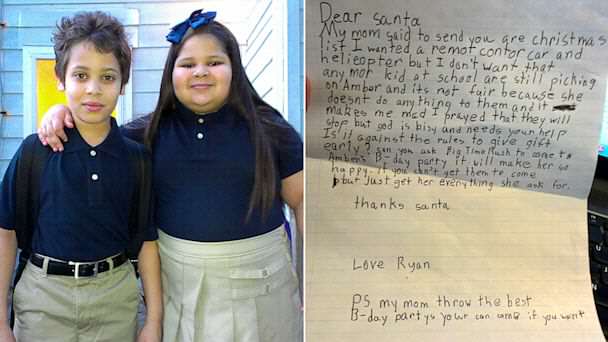 Dear santa
My mom said to send you are christmas
list I wanted a remot contor car and
helicopter but I don't want that
any mor kid at school are still picking
on Amber and its not fair because she
doesnt do anything to them and it
makes me mad I prayed that they will
stop but god is bisy and needs your help
Is it against the rules to give gift
early? can you ask Big Time Rush to come to
Ambers B-day party it will make her so
happy. If you can't get them to come
but just get her everything she ask for.
thanks santa
Love Ryan
PS my mom throw the best
B-day partys your can come if you want